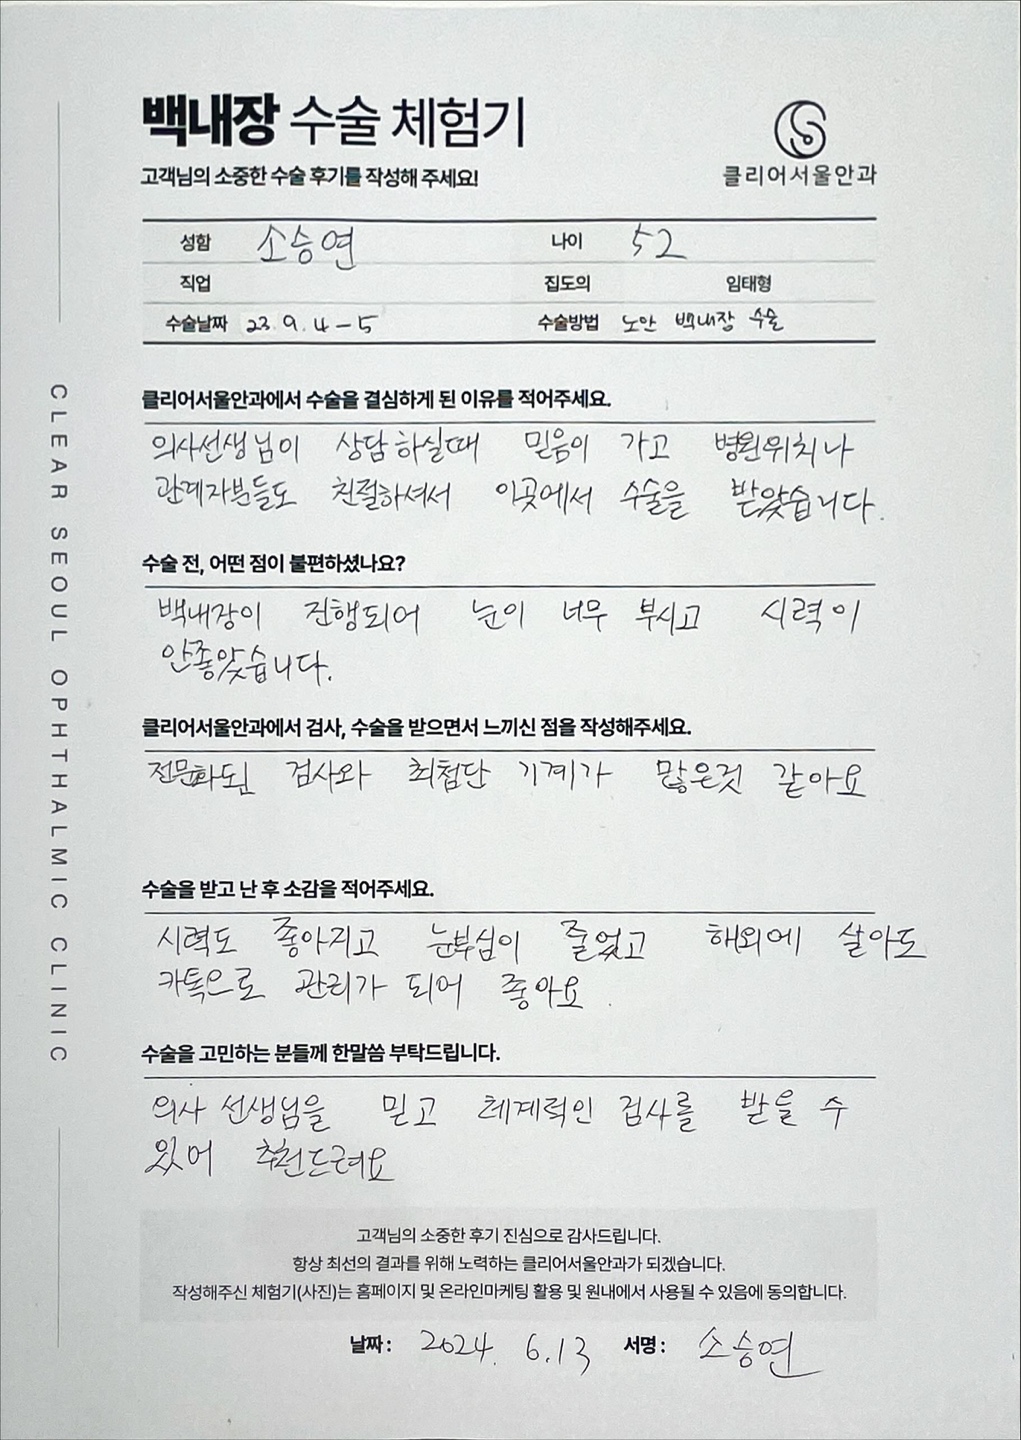 백내장 수술 체험기
고객님의 소중한 수술 후기를 작성해 주세요!
클리어서울안과
성함 소승연 나이 52
직업 집도의 임태형
수술날짜 23. 9. 4-5 수술방법 노안 백내장 수술
CLEAR SEOUL OPHTHALMIC CLINIC
클리어서울안과에서 수술을 결심하게 된 이유를 적어주세요.
의사선생님이 상담하실때 믿음이 가고 병원위치나
관계자분들도 친절하셔서 이곳에서 수술을 받았습니다.
수술 전, 어떤 점이 불편하셨나요?
백내장이 진행되어 눈이 너무 부시고 시력이
안좋았습니다.
클리어서울안과에서 검사, 수술을 받으면서 느끼신 점을 작성해주세요.
전문화된 검사와 최첨단 기계가 많은것 같아요
수술을 받고 난 후 소감을 적어주세요.
시력도 좋아지고 눈부심이 줄었고 해외에 살아도
카톡으로 관리가 되어 좋아요.
수술을 고민하는 분들께 한말씀 부탁드립니다.
의사 선생님을 믿고 체계적인 검사를 받을 수
있어 추천드려요
고객님의 소중한 후기 진심으로 감사드립니다.
항상 최선의 결과를 위해 노력하는 클리어서울안과가 되겠습니다.
작성해주신 체험기(사진)는 홈페이지 및 온라인마케팅 활용 및 원내에서 사용될 수 있음에 동의합니다.
날짜 : 2024. 6.13 서명 : 소승연